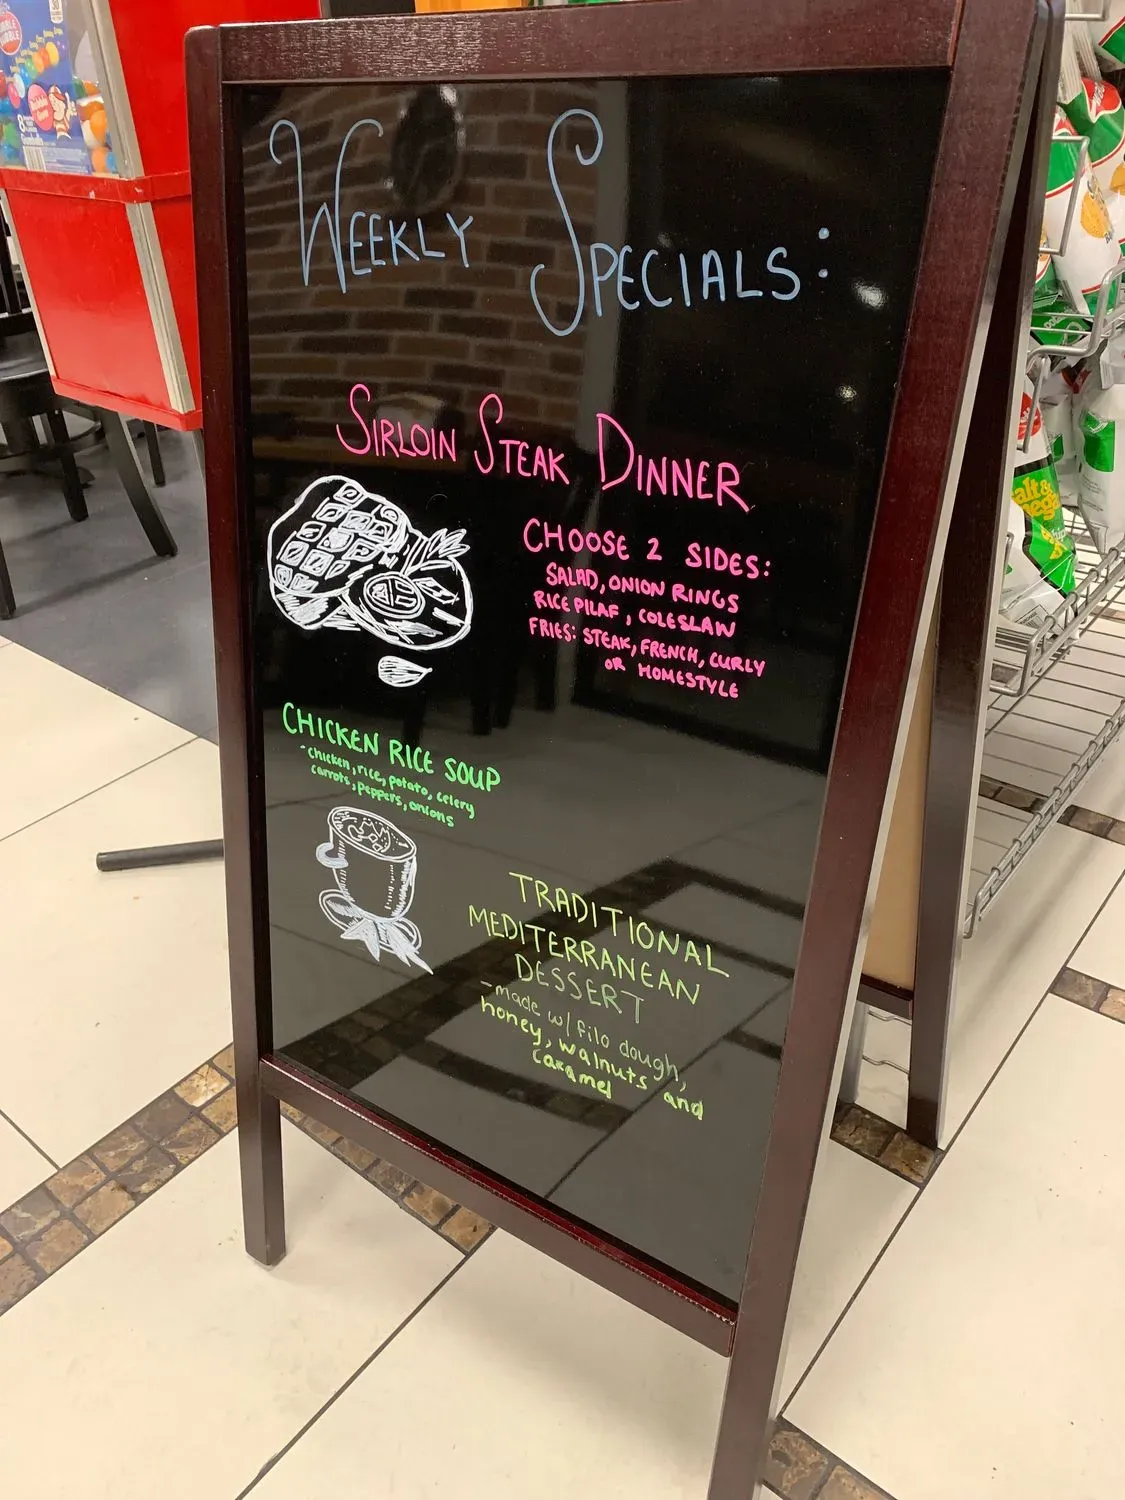 WEEKLY SPECIALS:
SIRLOIN STEAK DINNER
CHOOSE 2 SIDES:
SALAD, ONION RINGS
RICE PILAF, COLESLAW
FRIES: STEAK, FRENCH, CURLY
OR HOMESTYLE
CHICKEN RICE SOUP
- chicken, rice, potato, celery
carrots, peppers, onions
TRADITIONAL
MEDITERRANEAN
DESSERT
- made w/ filo dough,
honey, walnuts and
caramel